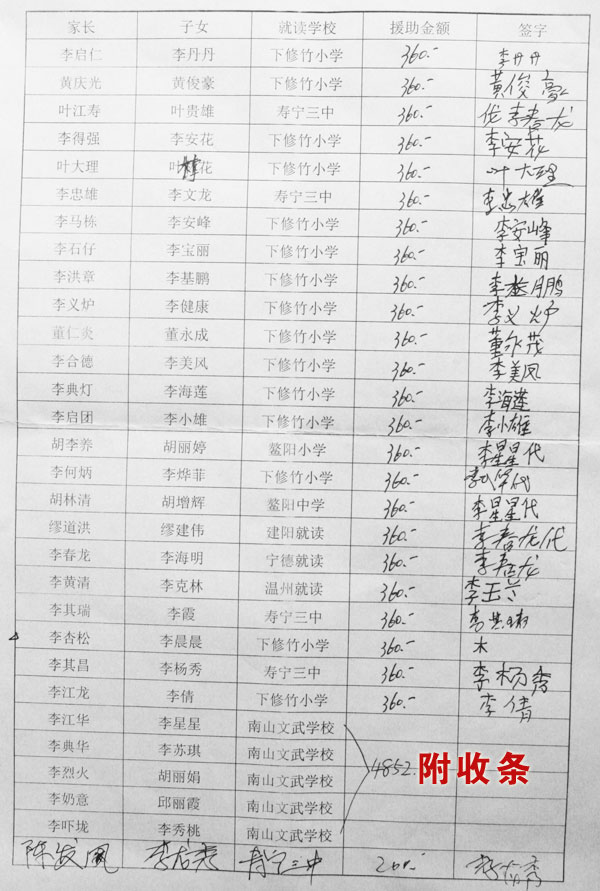 家长 子女 就读学校 援助金额 签字
李启仁 李丹丹 下修竹小学 360.- 李丹丹
黄庆光 黄俊豪 下修竹小学 360.- 黄俊豪
叶江寿 叶贵雄 寿宁三中 360.- 李春龙
李得强 李安花 下修竹小学 360.- 李安花
叶大理 叶花 下修竹小学 360.- 叶大理
李忠雄 李文龙 寿宁三中 360.- 李忠雄
李马栋 李安峰 下修竹小学 360.- 李安峰
李石仔 李宝丽 下修竹小学 360.- 李宝丽
李洪章 李基鹏 下修竹小学 360.- 李基鹏
李义炉 李健康 下修竹小学 360.- 李义炉
董仁炎 董永成 下修竹小学 360.- 董永茂
李合德 李美风 下修竹小学 360.- 李美凤
李典灯 李海莲 下修竹小学 360.- 李海莲
李启团 李小雄 下修竹小学 360.- 李小雄
胡李养 胡丽婷 鳌阳小学 360.- 李星星代
李何炳 李烨菲 下修竹小学 360.-
胡林清 胡增辉 鳌阳中学 360.- 李星星代
缪道洪 缪建伟 建阳就读 360.- 李春龙代
李春龙 李海明 宁德就读 360.- 李春龙
李黄清 李克林 温州就读 360.- 李玉兰
李其瑞 李霞 寿宁三中 360.-
李杏松 李晨晨 下修竹小学 360.- 木
李其昌 李杨秀 寿宁三中 360.- 李杨秀
李江龙 李倩 下修竹小学 360.- 李倩
李江华 李星星 南山文武学校
李典华 李苏琪 南山文武学校
李烈火 胡丽娟 南山文武学校 4852. 附收条
李奶意 邱丽霞 南山文武学校
李吓垅 李秀桃 南山文武学校
陈发凤 寿宁三中 200.-